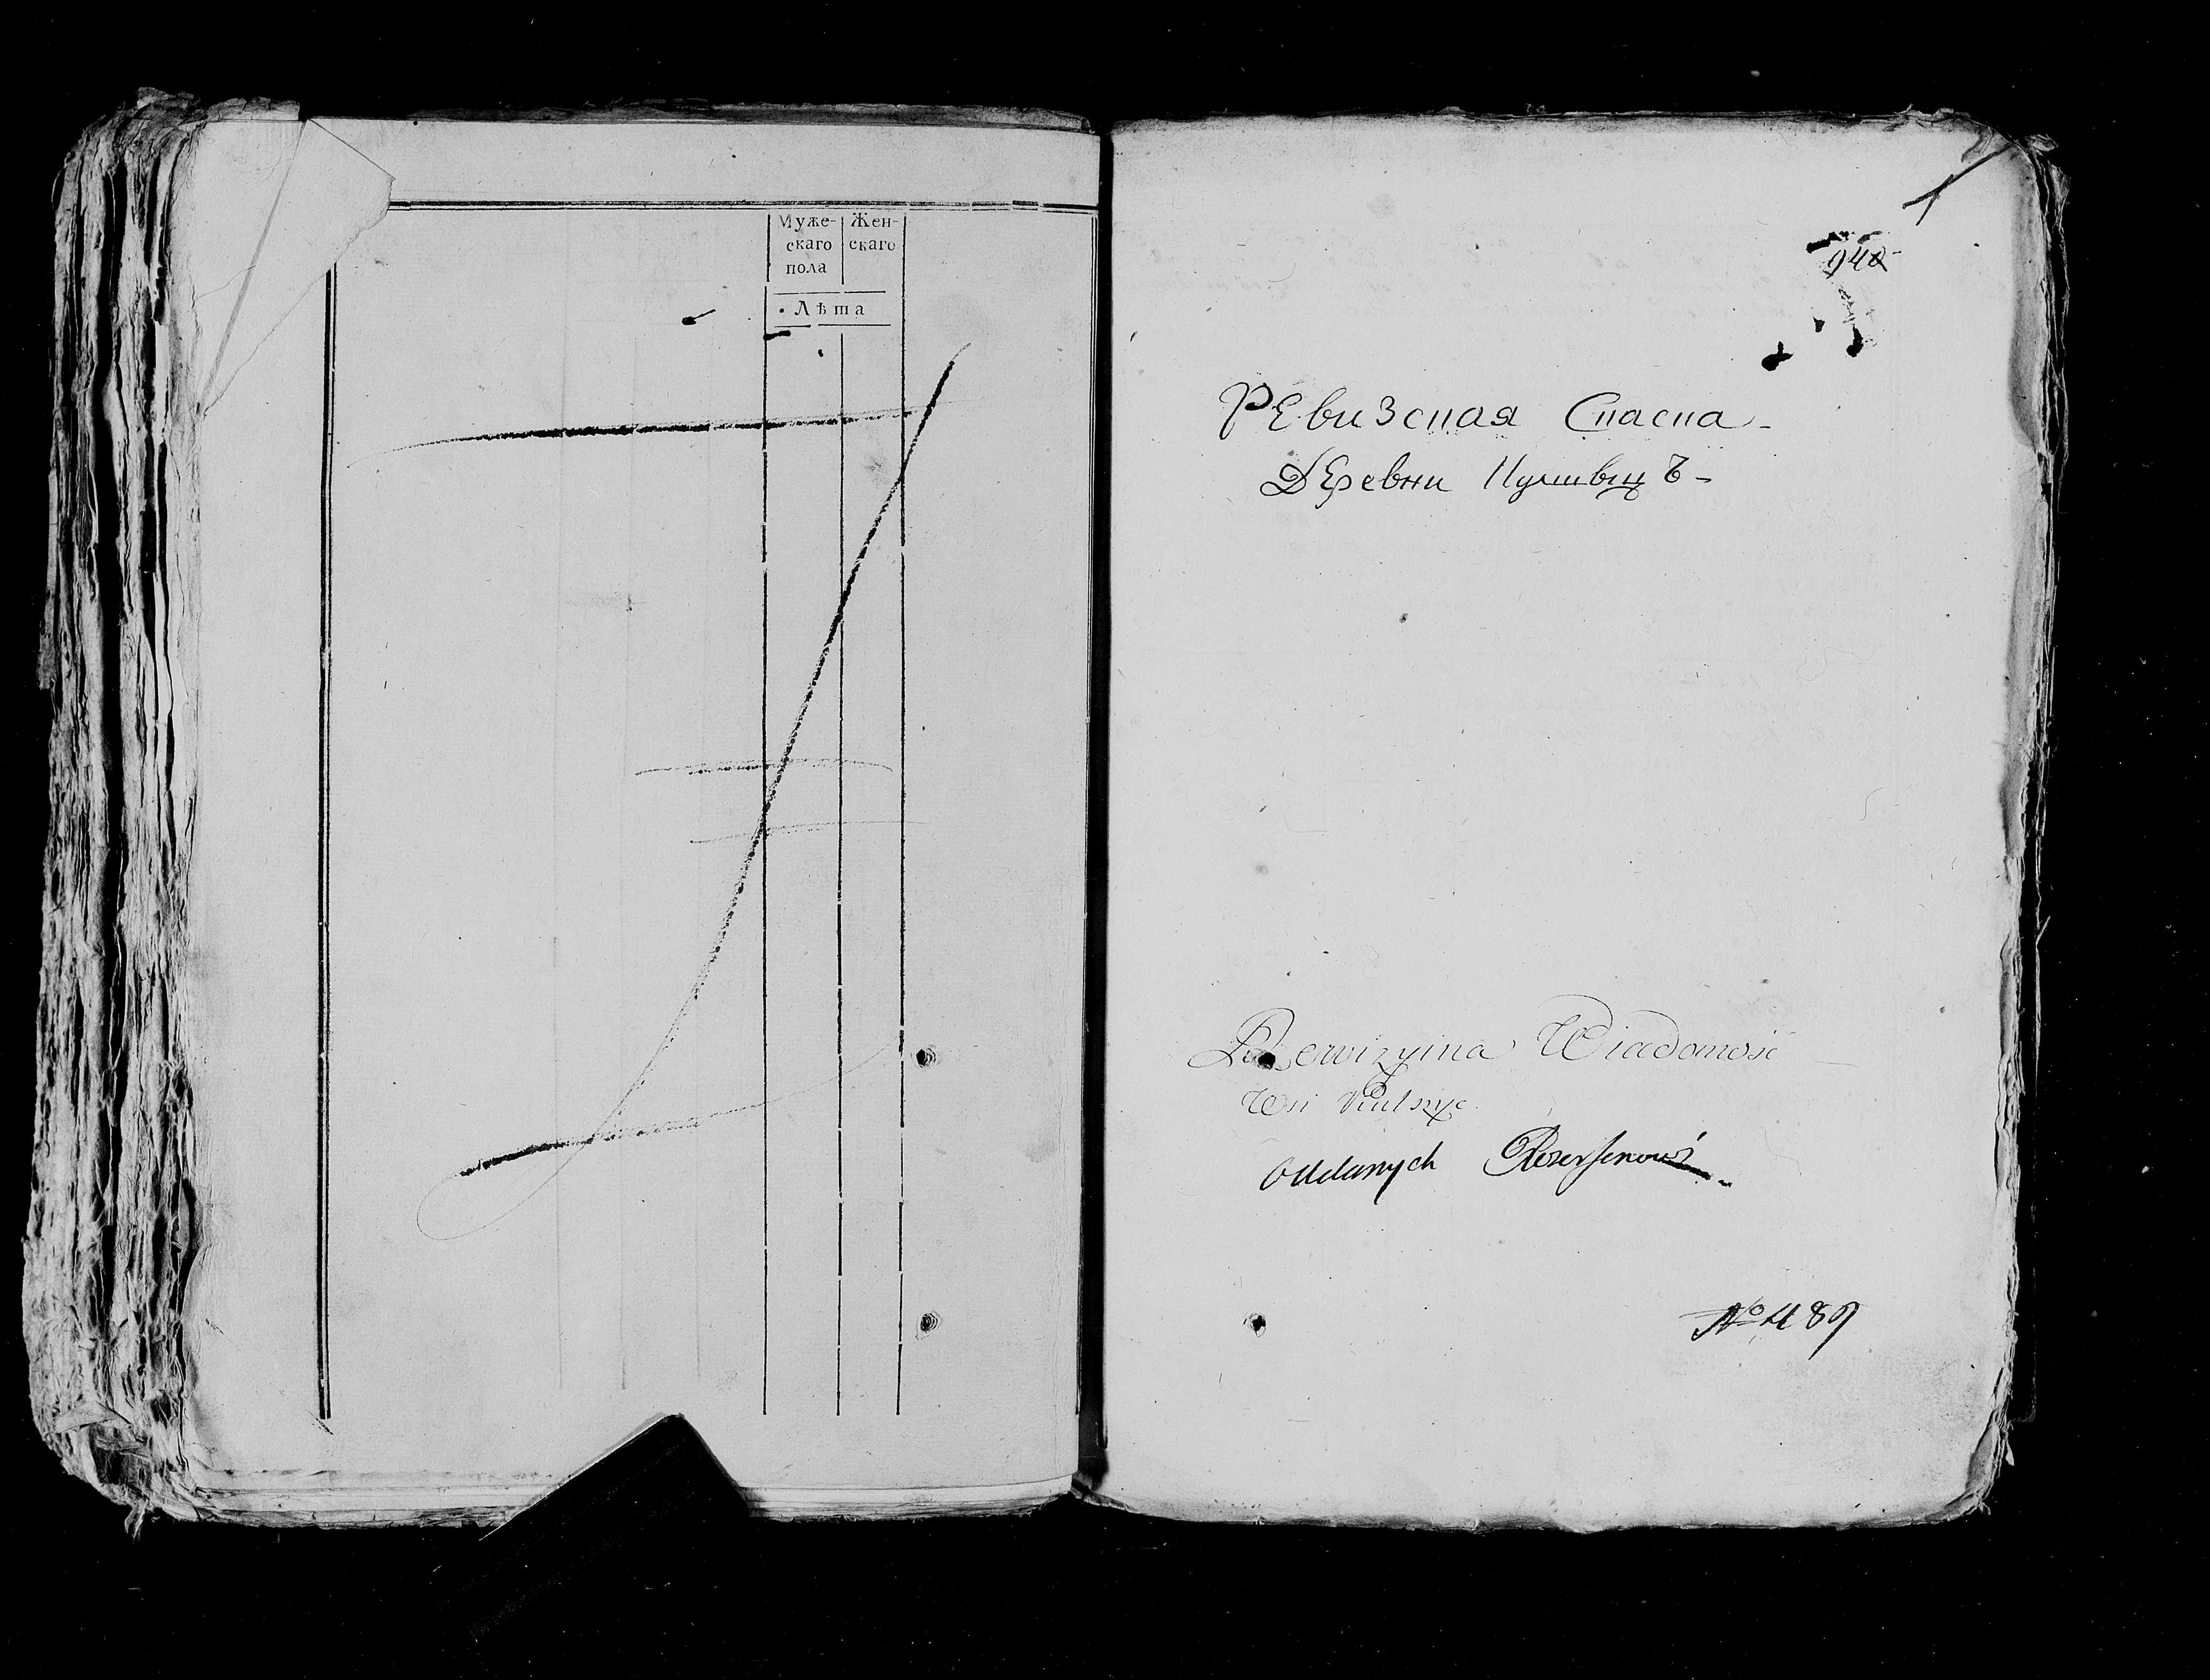 Муже-
скаго
пола
Жен-
скаго
Лѣта
940
Ревизская Сказка
Деревни
Rewizyina Wiadomość
Wsi
Oddanych
№ 489